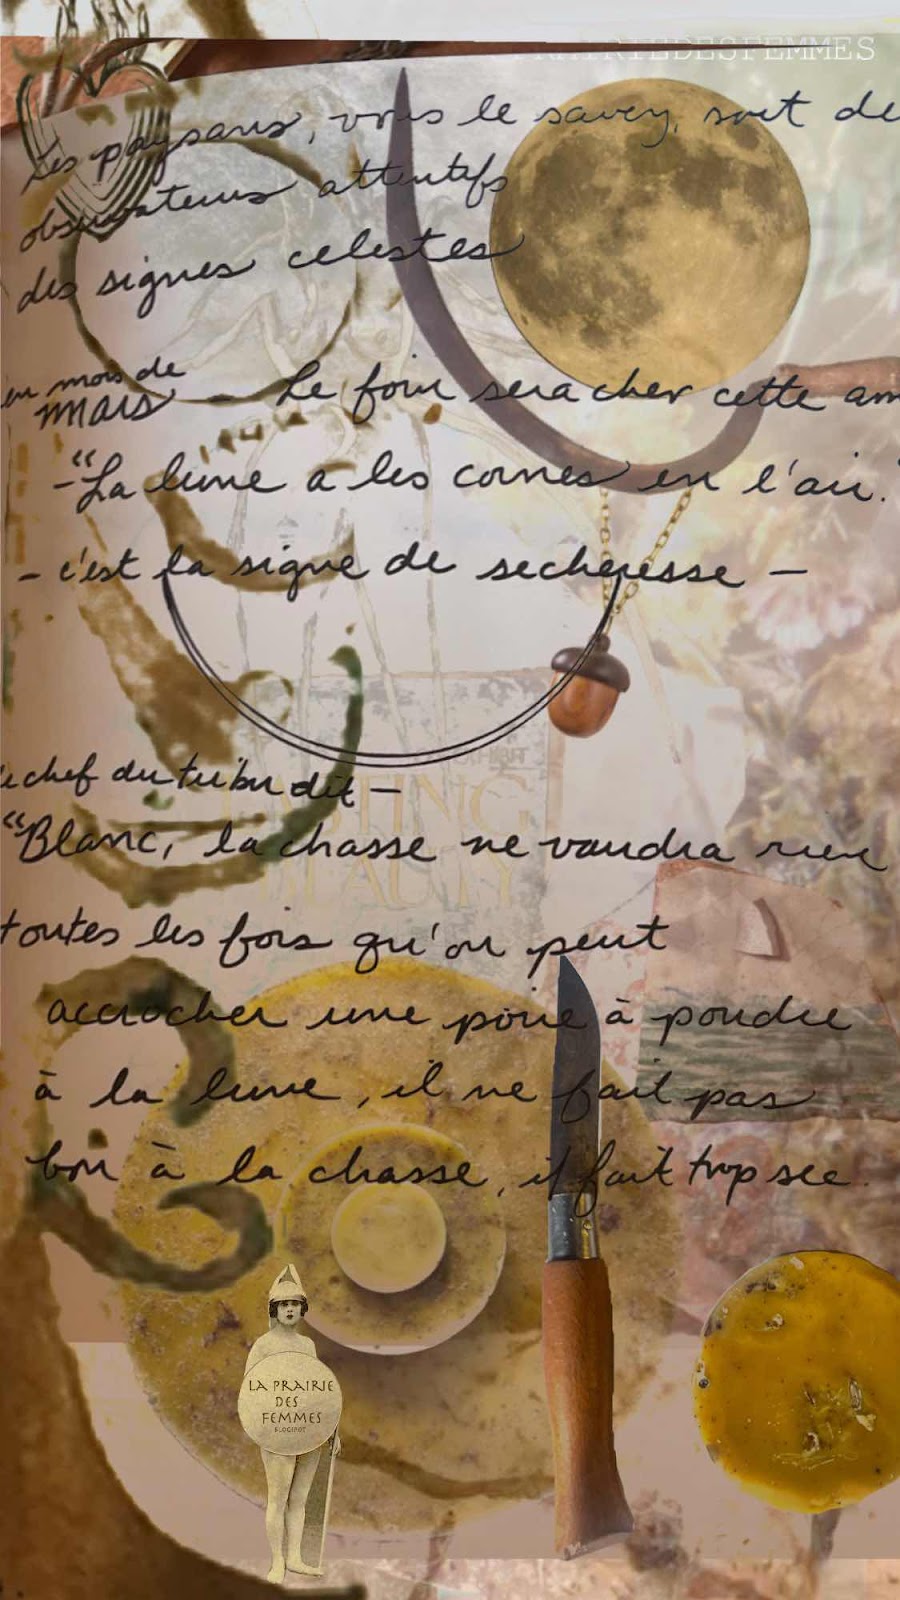 PRAIRIEDESFEMMES
Les paysans, vous le savez, sont de
observateurs attentifs
des signes celestes
en mois de
mars - Le foin sera cher cette ann
- "La lune a les cornes en l'air."
- c'est la signe de secheresse -
chef du tribu dit -
"Blanc, la chasse ne vaudra rien
toutes les fois qu'on peut
accrocher une poire à poudre
à la lune, il ne fait pas
bon à la chasse, il fait trop sec.
LA PRAIRIE
DES
FEMMES
BLOGSPOT